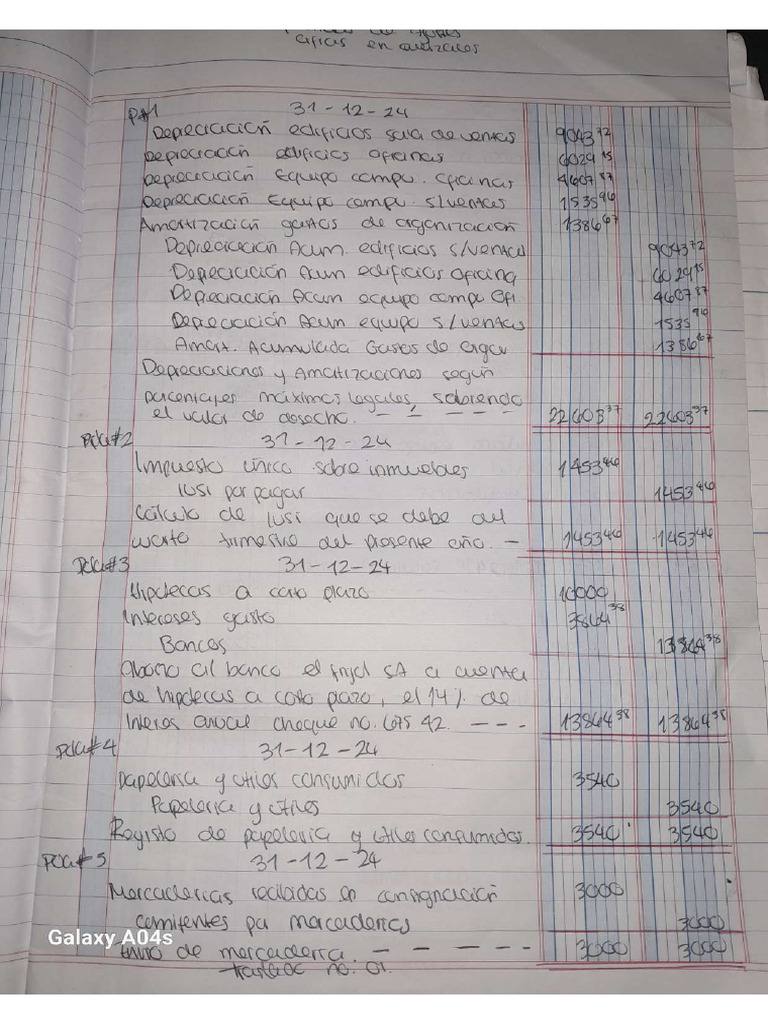 cificas en avanzales
Pd#1 31-12-24
Depreciación edificios sala de ventas 9043 72
Depreciación edificios oficinas 6029 15
Depreciación Equipo compu. oficinas 4607 87
Depreciación Equipo compu. s/ventas 1535 96
Amortización gastos de organización 1386 67
Depreciación Acum. edificios s/ventas 9043 72
Depreciación Acum edificios oficina 6029 15
Depreciación Acum equipo compu Ofi. 4607 87
Depreciación Acum equipo s/ventas 1535 96
Amort. Acumulada Gastos de organ 1386 67
Depreciaciones y Amortizaciones según
porcentajes máximos legales, sobrendo
el valor de desecho. - - - - - 22603 37 22603 37
Pda#2 31-12-24
Impuesto único sobre inmuebles 1453 46
IUSI por pagar 1453 46
Cálculo de IUSI que se debe del
cuarto trimestre del presente año. - 1453 46 1453 46
Pda#3 31-12-24
Hipotecas a corto plazo 10000
Intereses gasto 3864 38
Bancos 13864 38
Abono al banco el frijol SA a cuenta
de hipotecas a corto plazo, el 14% de
Interes anual cheque no. 675 42. - - - 13864 38 13864 38
Pda#4 31-12-24
Papeleria y utiles consumidos 3540
Papeleria y utiles 3540
Registo de papeleria y utiles consumidos. 3540 3540
Pda#5 31-12-24
Mercaderias recibidas en consignación 3000
comitentes pa mercaderias 3000
Envio de mercaderia. - - - - - 3000 3000
traslado no. 01.
Galaxy A04s